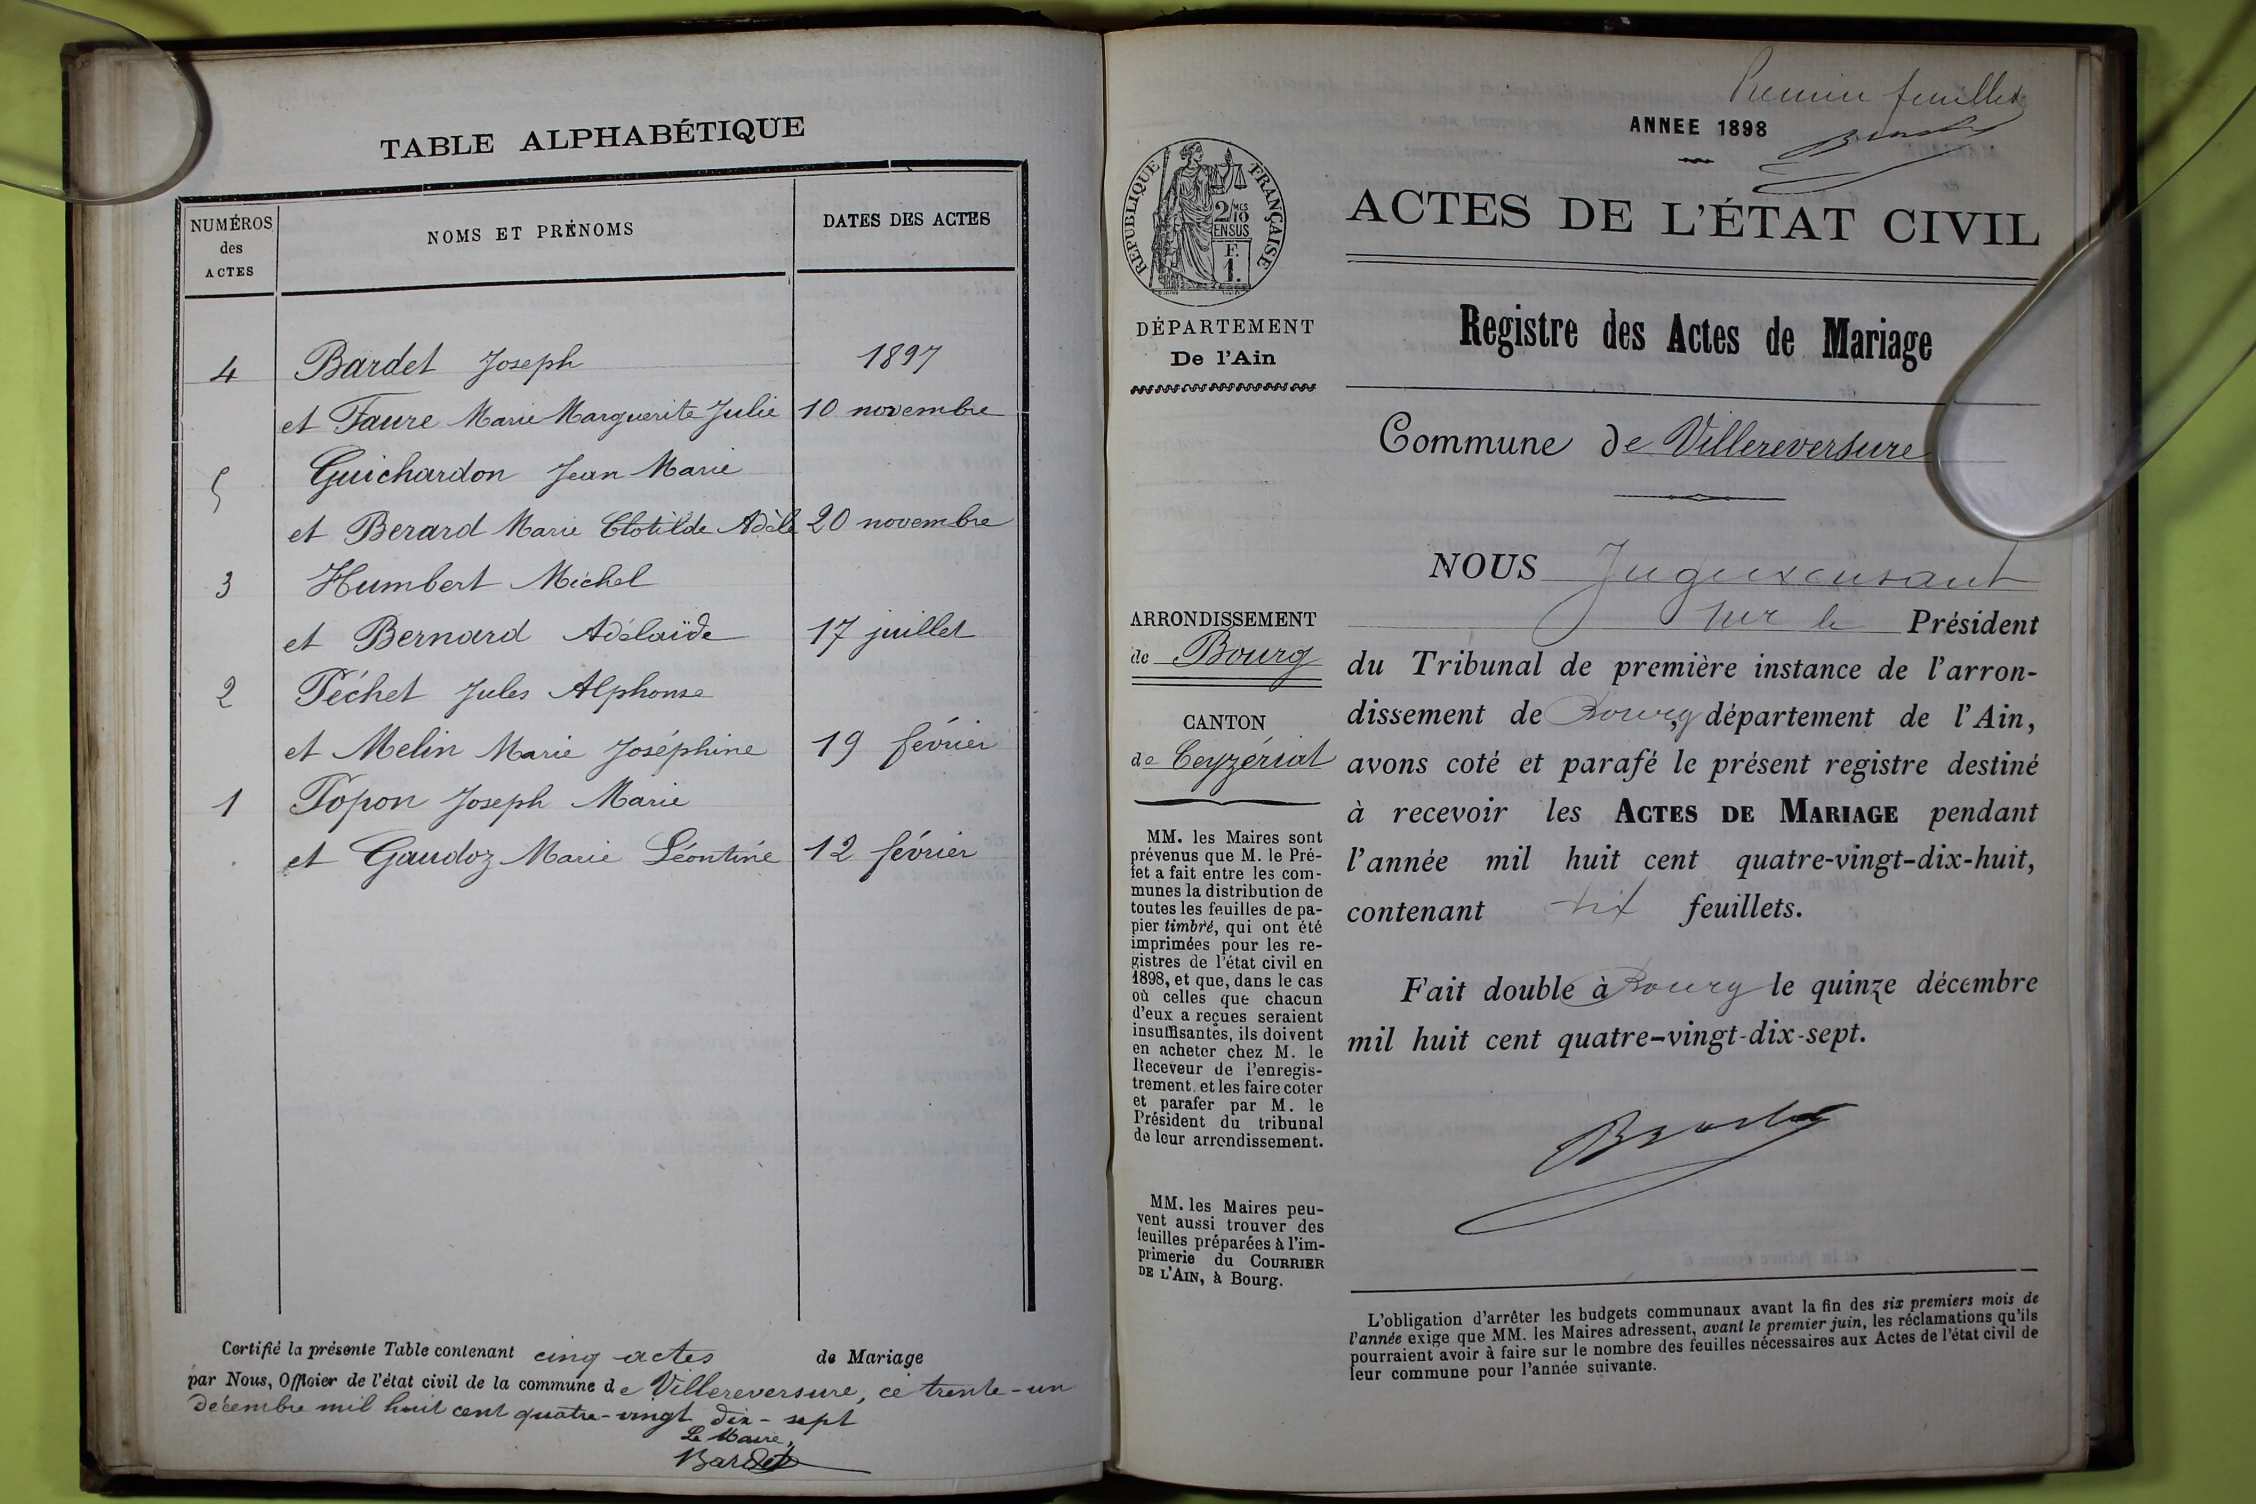 TABLE ALPHABÉTIQUE
NUMÉROS
des
ACTES
NOMS ET PRÉNOMS
DATES DES ACTES
4 Bardet Joseph 1897
et Faure Marie Marguerite Julie 10 novembre
5 Guichardon Jean Marie
et Berard Marie Clotilde Adèle 20 novembre
3 Humbert Michel
et Bernard Adélaïde 17 juillet
2 Péchet Jules Alphonse
et Melin Marie Joséphine 19 février
1 Popon Joseph Marie
et Gaudoz Marie Léontine 12 février
Certifié la présente Table contenant cinq actes de Mariage
par Nous, Officier de l'état civil de la commune de Villereversure, ce trente-un
décembre mil huit cent quatre-vingt dix-sept
Le Maire,
Bardet
Premier feuillet
ANNEE 1898
RÉPUBLIQUE FRANÇAISE
2/10 MES
EN SUS
F.
1.
ACTES DE L'ÉTAT CIVIL
DÉPARTEMENT
De l'Ain
Registre des Actes de Mariage
Commune de Villereversure
ARRONDISSEMENT
de Bourg
CANTON
de Ceyzériat
MM. les Maires sont
prévenus que M. le Pré-
fet a fait entre les com-
munes la distribution de
toutes les feuilles de pa-
pier timbré, qui ont été
imprimées pour les re-
gistres de l'état civil en
1898, et que, dans le cas
où celles que chacun
d'eux a reçues seraient
insuffisantes, ils doivent
en acheter chez M. le
Receveur de l'enregis-
trement, et les faire coter
et parafer par M. le
Président du tribunal
de leur arrondissement.
MM. les Maires peu-
vent aussi trouver des
feuilles préparées à l'im-
primerie du COURRIER
DE L'AIN, à Bourg.
NOUS Juge
le Président
du Tribunal de première instance de l'arron-
dissement de Bourg, département de l'Ain,
avons coté et parafé le présent registre destiné
à recevoir les ACTES DE MARIAGE pendant
l'année mil huit cent quatre-vingt-dix-huit,
contenant feuillets.
Fait double à Bourg le quinze décembre
mil huit cent quatre-vingt-dix-sept.
L'obligation d'arrêter les budgets communaux avant la fin des six premiers mois de
l'année exige que MM. les Maires adressent, avant le premier juin, les réclamations qu'ils
pourraient avoir à faire sur le nombre des feuilles nécessaires aux Actes de l'état civil de
leur commune pour l'année suivante.